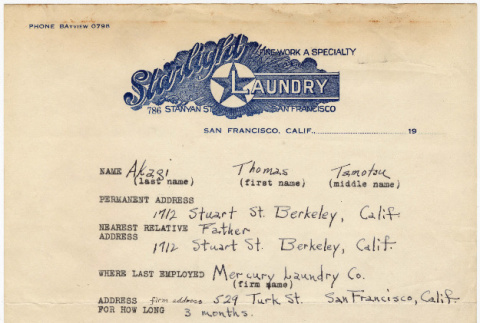 PHONE BAYVIEW 0798
Starlight
FINE WORK A SPECIALTY
LAUNDRY
786 STANYAN ST. SAN FRANCISCO
SAN FRANCISCO, CALIF., 19
NAME Akagi Thomas Tamotsu
(last name) (first name) (middle name)
PERMANENT ADDRESS
1712 Stuart St. Berkeley, Calif.
NEAREST RELATIVE Father
ADDRESS
1712 Stuart St. Berkeley, Calif.
WHERE LAST EMPLOYED Mercury Laundry Co.
(firm name)
ADDRESS firm address 529 Turk St. San Francisco, Calif.
FOR HOW LONG 3 months.